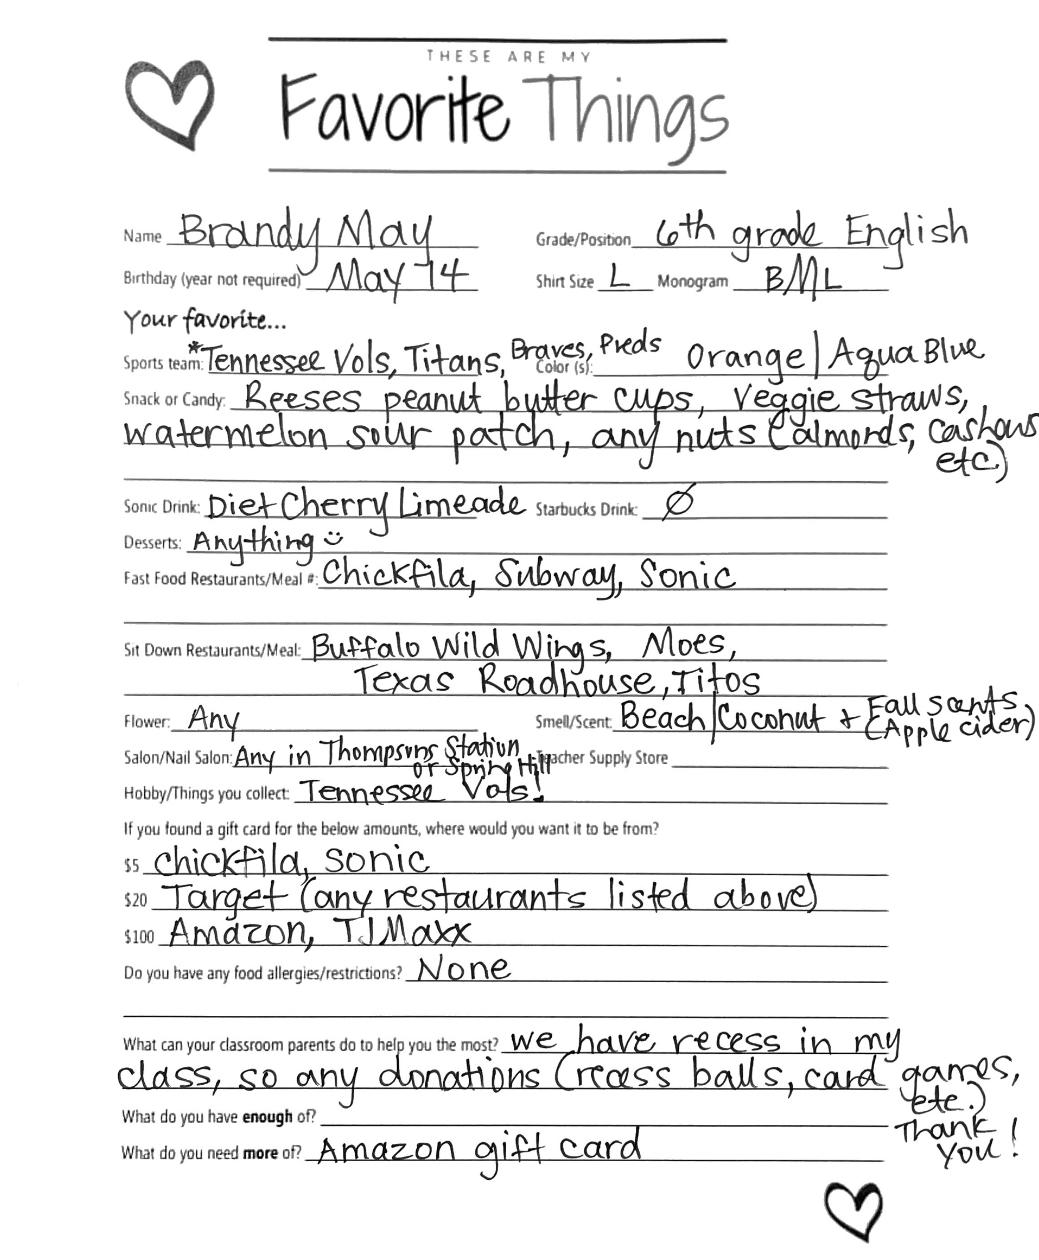 THESE ARE MY
Favorite Things
Name Brandy May Grade/Position 6th grade English
Birthday (year not required) May 14 Shirt Size L Monogram BML
Your favorite...
Sports team: *Tennessee Vols, Titans, Braves, Preds Color (s): Orange | Aqua Blue
Snack or Candy: Reeses peanut butter cups, Veggie straws,
watermelon sour patch, any nuts (almords, cashous
etc.)
Sonic Drink: Diet Cherry Limeade Starbucks Drink: Ø
Desserts: Anything
Fast Food Restaurants/Meal #: Chickfila, Subway, Sonic
Sit Down Restaurants/Meal: Buffalo Wild Wings, Moes,
Texas Roadhouse, Titos
Flower: Any Smell/Scent: Beach | Coconut + Fall scents
(Apple cider)
Salon/Nail Salon: Any in Thompsons Station
or Spring Hill Teacher Supply Store
Hobby/Things you collect: Tennessee Vols!
If you found a gift card for the below amounts, where would you want it to be from?
$5 chickfila, sonic
$20 Target (any restaurants listed above)
$100 Amazon, TJMaxx
Do you have any food allergies/restrictions? None
What can your classroom parents do to help you the most? we have recess in my
class, so any donations (recess balls, card games,
etc.)
What do you have enough of? Thank
You!
What do you need more of? Amazon gift card